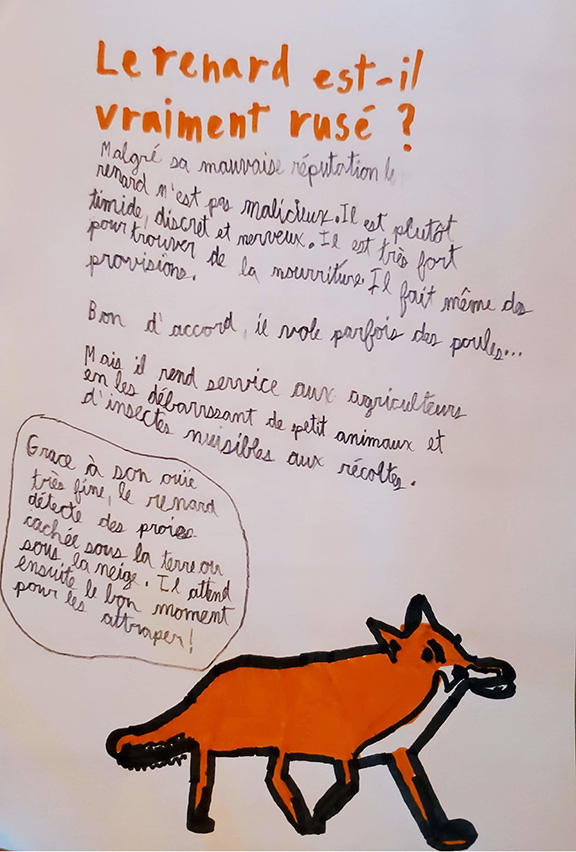 Le renard est-il
vraiment rusé ?
Malgré sa mauvaise réputation le
renard n'est pas malicieux. Il est plutôt
timide, discret et nerveux. Il est très fort
pour trouver de la nourriture. Il fait même des
provisions.
Bon d'accord, il vole parfois des poules...
Mais il rend service aux agriculteurs
en les débarssant de petit animaux et
d'insectes nuisibles aux récoltes.
Grace à son ouïe
très fine, le renard
détecte des proies
cachée sous la terre ou
sous la neige. Il attend
ensuite le bon moment
pour les attraper!